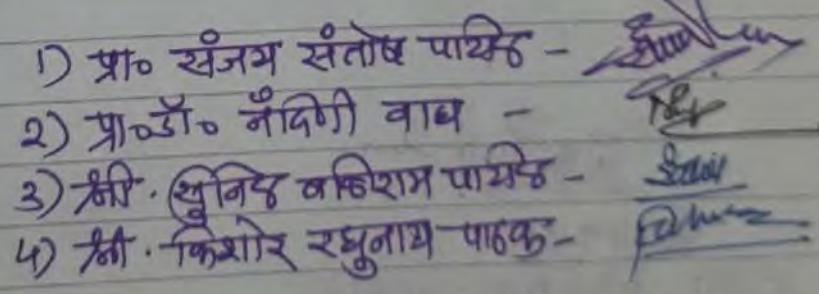 1) प्रा० संजय संतोष पाटील -
2) प्रा०डॉ० नंदिनी वाघ -
3) श्री. सुनिल बळिराम पाटील -
4) श्री. किशोर रघुनाथ पाठक -